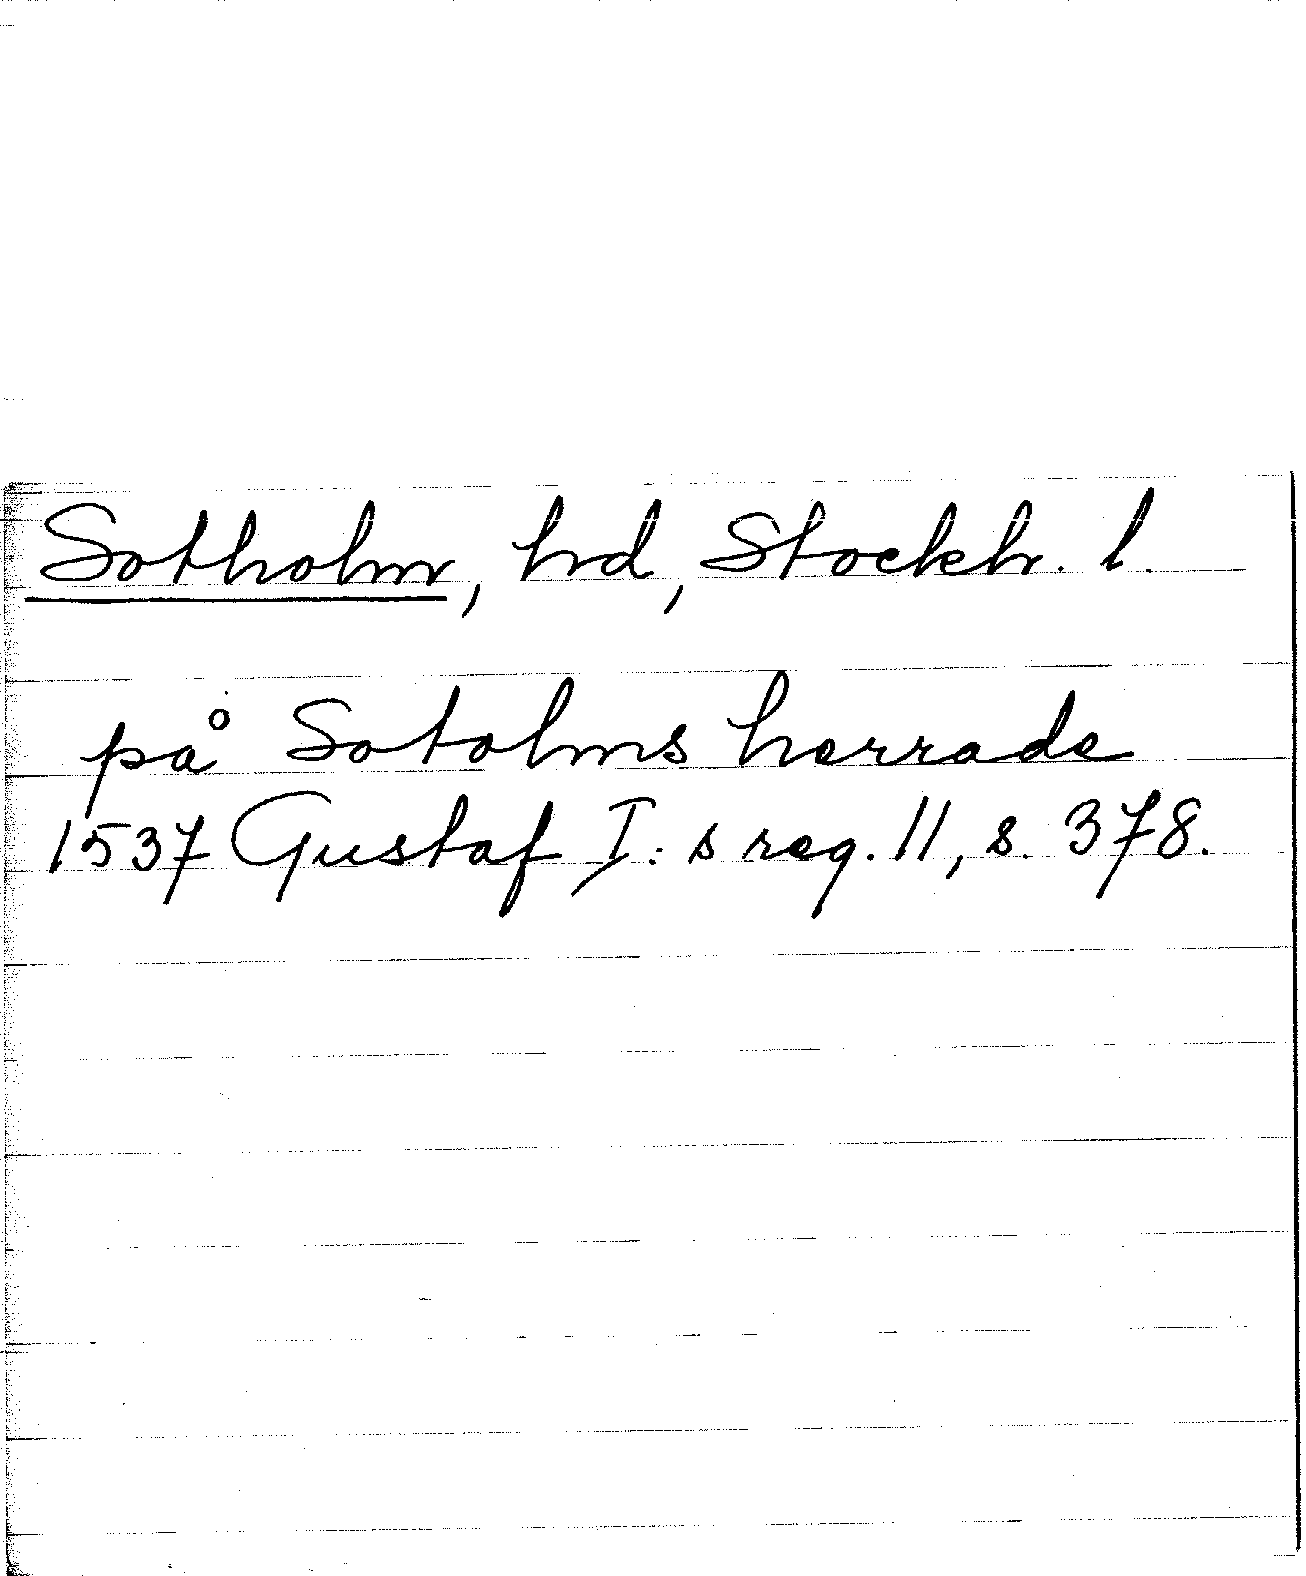 Sotholm, hd, Stockh. l.
på Sotolms herrade
1537 Gustaf I: s reg. 11, s. 378.